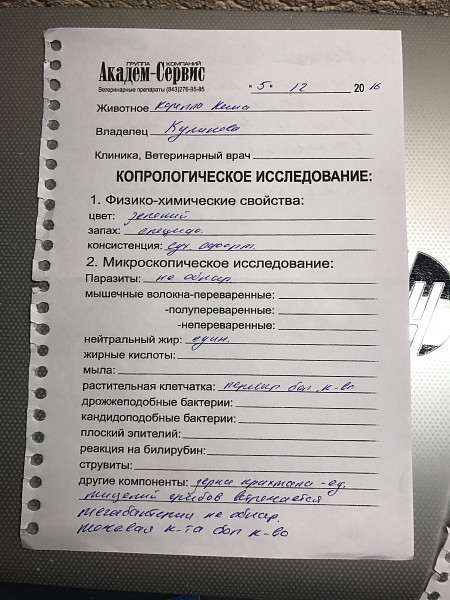 ГРУППА КОМПАНИЙ
Академ-Сервис
Ветеринарные препараты (843)276-95-85
"5" 12 2016
Животное Корелла Кеша
Владелец Куликова
Клиника, Ветеринарный врач
КОПРОЛОГИЧЕСКОЕ ИССЛЕДОВАНИЕ:
1. Физико-химические свойства:
цвет: зеленый
запах: специф.
консистенция: сух. оформ.
2. Микроскопическое исследование:
Паразиты: не обнар.
мышечные волокна-переваренные:
-полупереваренные:
-непереваренные:
нейтральный жир: един.
жирные кислоты:
мыла:
растительная клетчатка: перевар бол. к-во
дрожжеподобные бактерии:
кандидоподобные бактерии:
плоский эпителий:
реакция на билирубин:
струвиты:
другие компоненты: зерна крахмала - ед.
мицелий грибов встречается
мегабактерии не обнар.
мочевая к-та бол к-во